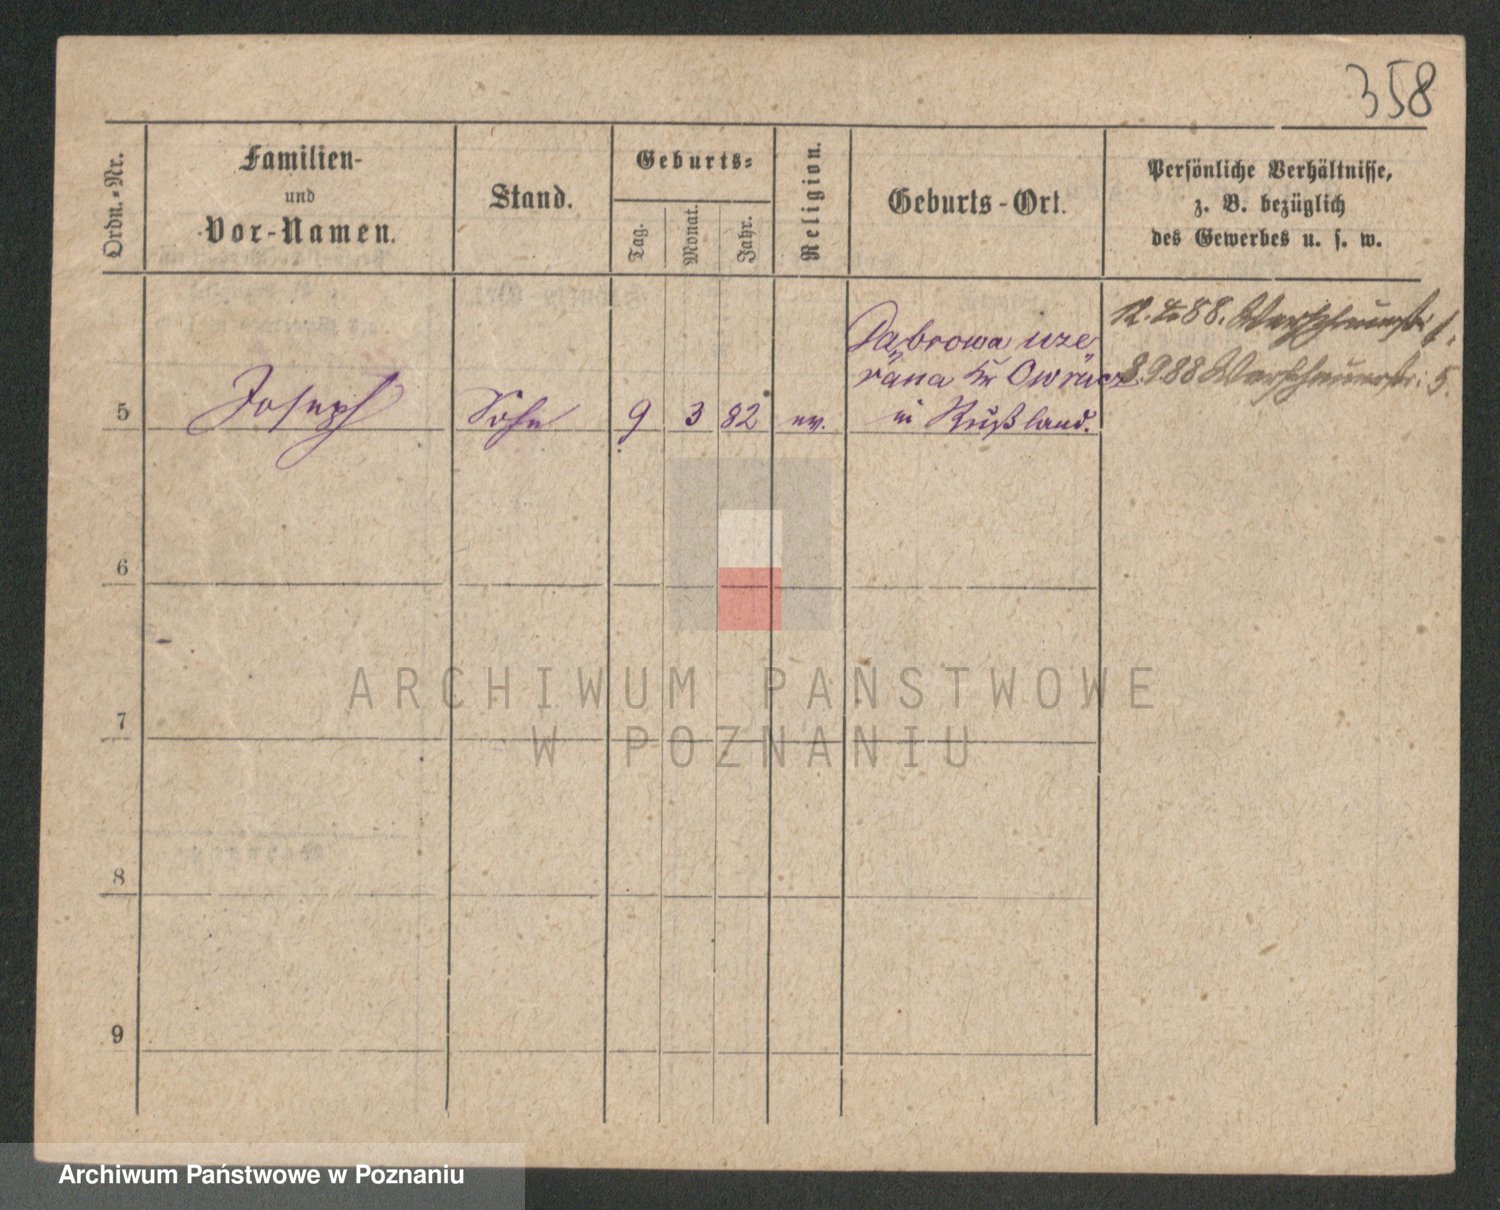 358
Ordn.-Nr.
Familien-
und
Vor-Namen.
Stand.
Geburts-
Tag.
Monat.
Jahr.
Religion.
Geburts-Ort.
Persönliche Verhältnisse,
z. B. bezüglich
des Gewerbes u. s. w.
5
Joseph
Sohn
9
3
82
ev.
Dąbrowa
rana Kr Owrucz
in Rußland.
88.
8.9.88 5.
6
7
8
9
ARCHIWUM PAŃSTWOWE
W POZNANIU
Archiwum Państwowe w Poznaniu